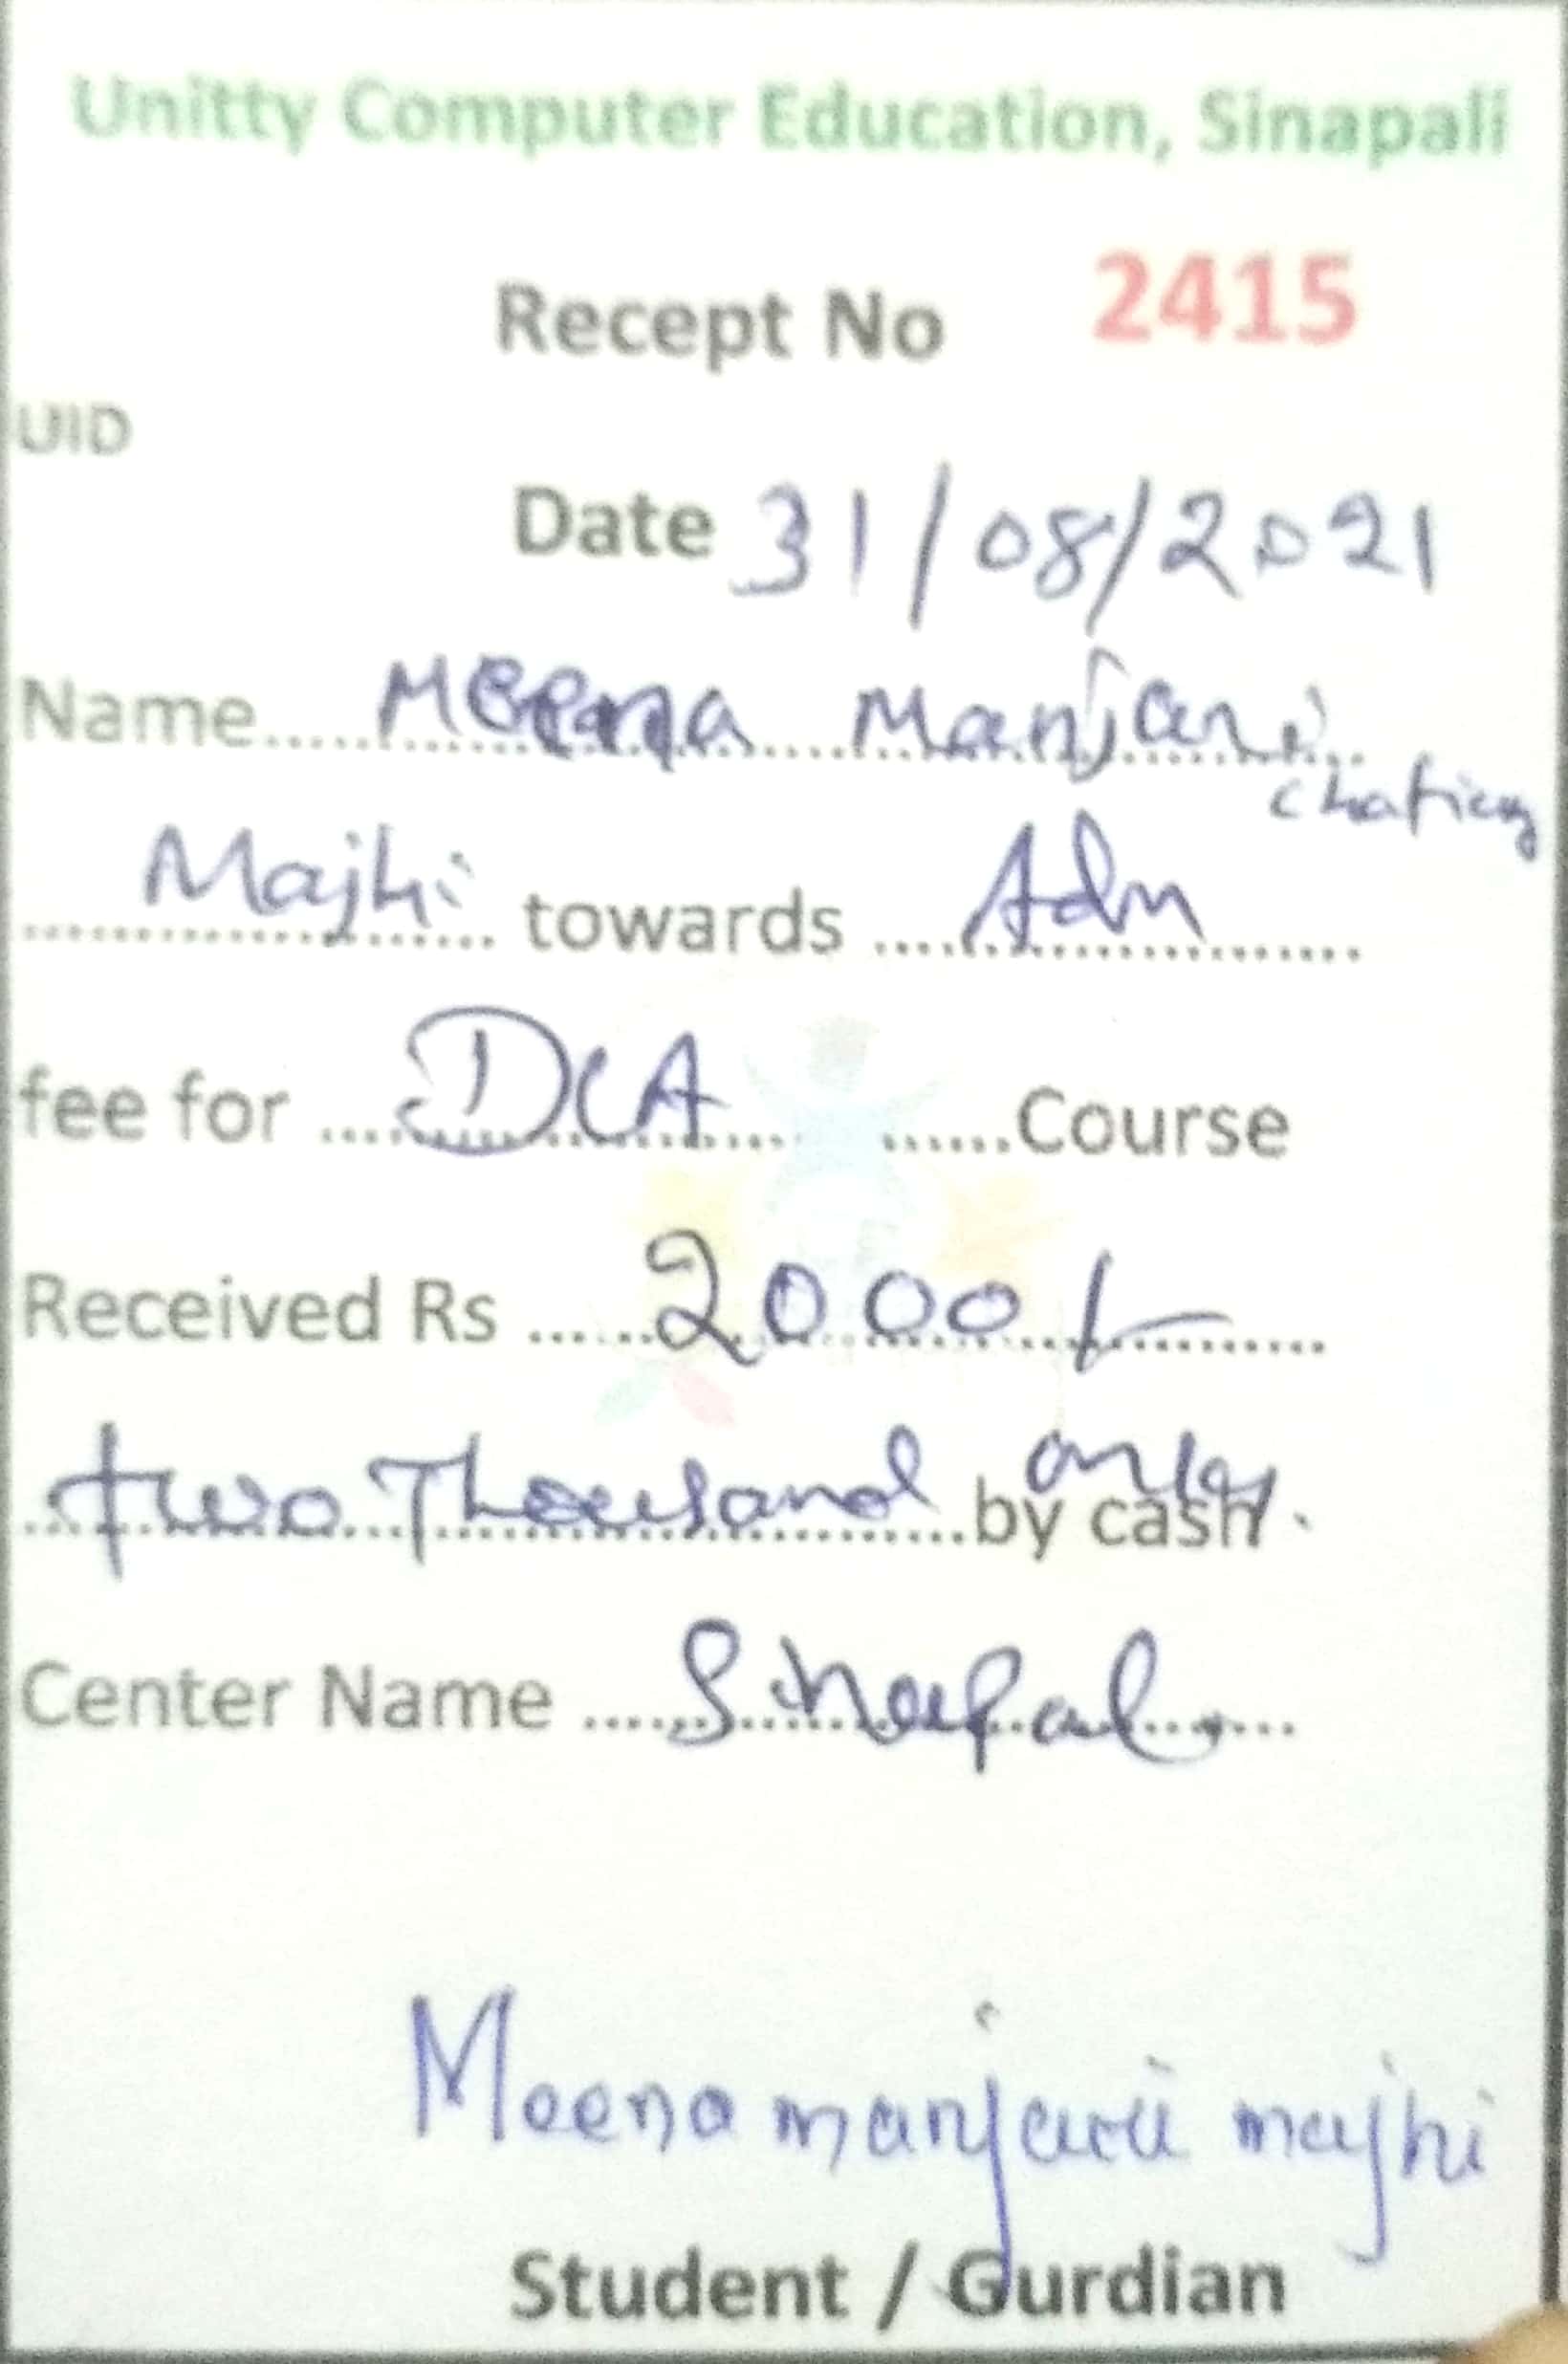 Unitty Computer Education, Sinapali
Recept No 2415
UID
Date 31/08/2021
Name.... Meena Manjari
Majhi towards .... Adm
fee for .... DCA ......Course
Received Rs ...... 2000/-
two Thousand only by cash.
Center Name ..... Sinapali
Meena manjari majhi
Student / Gurdian